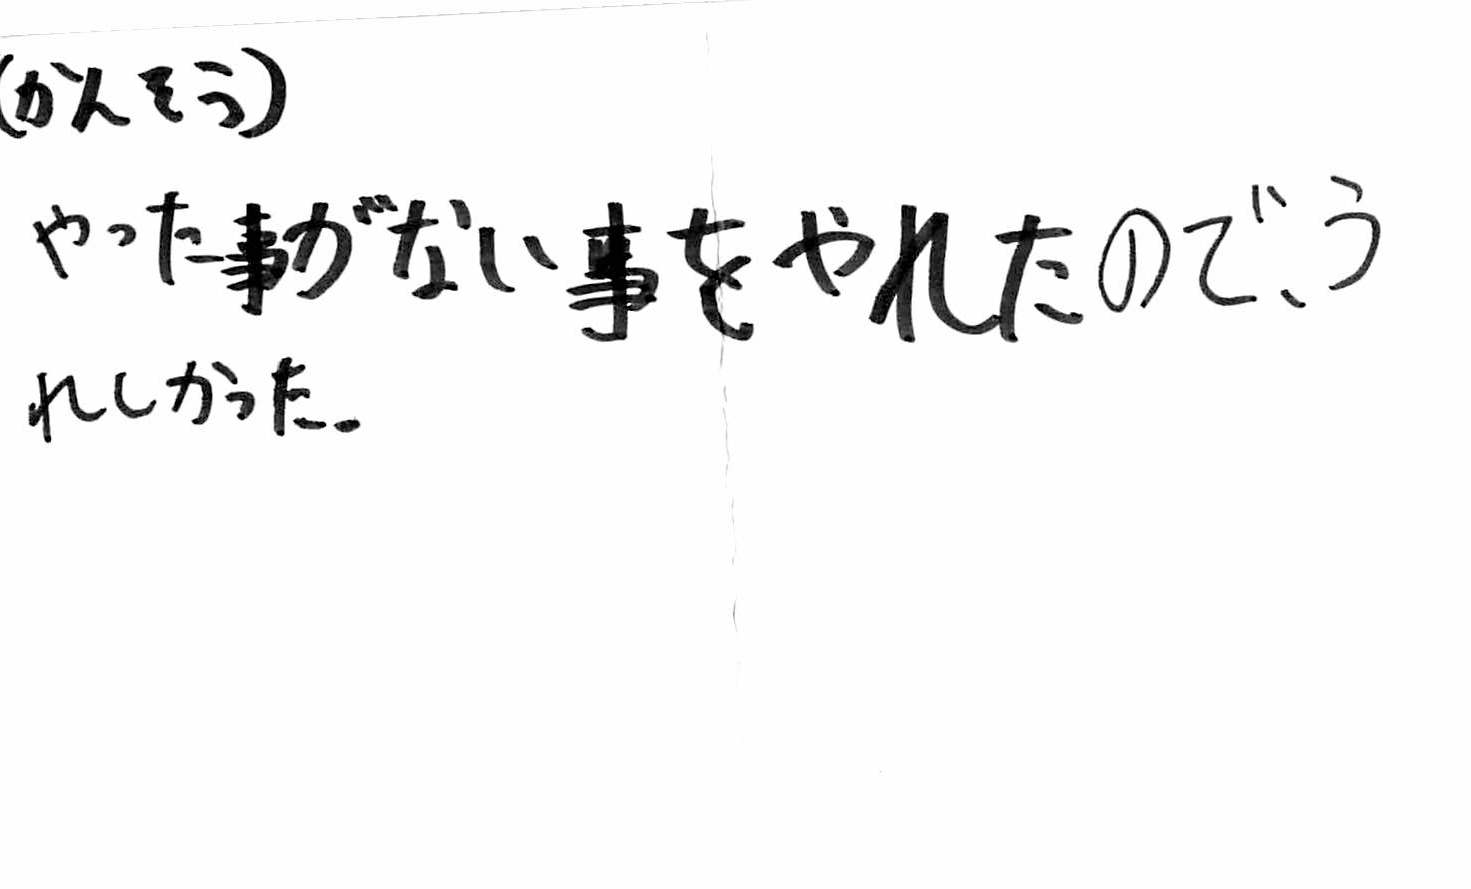 (かんそう)
やった事がない事をやれたので、う
れしかった。